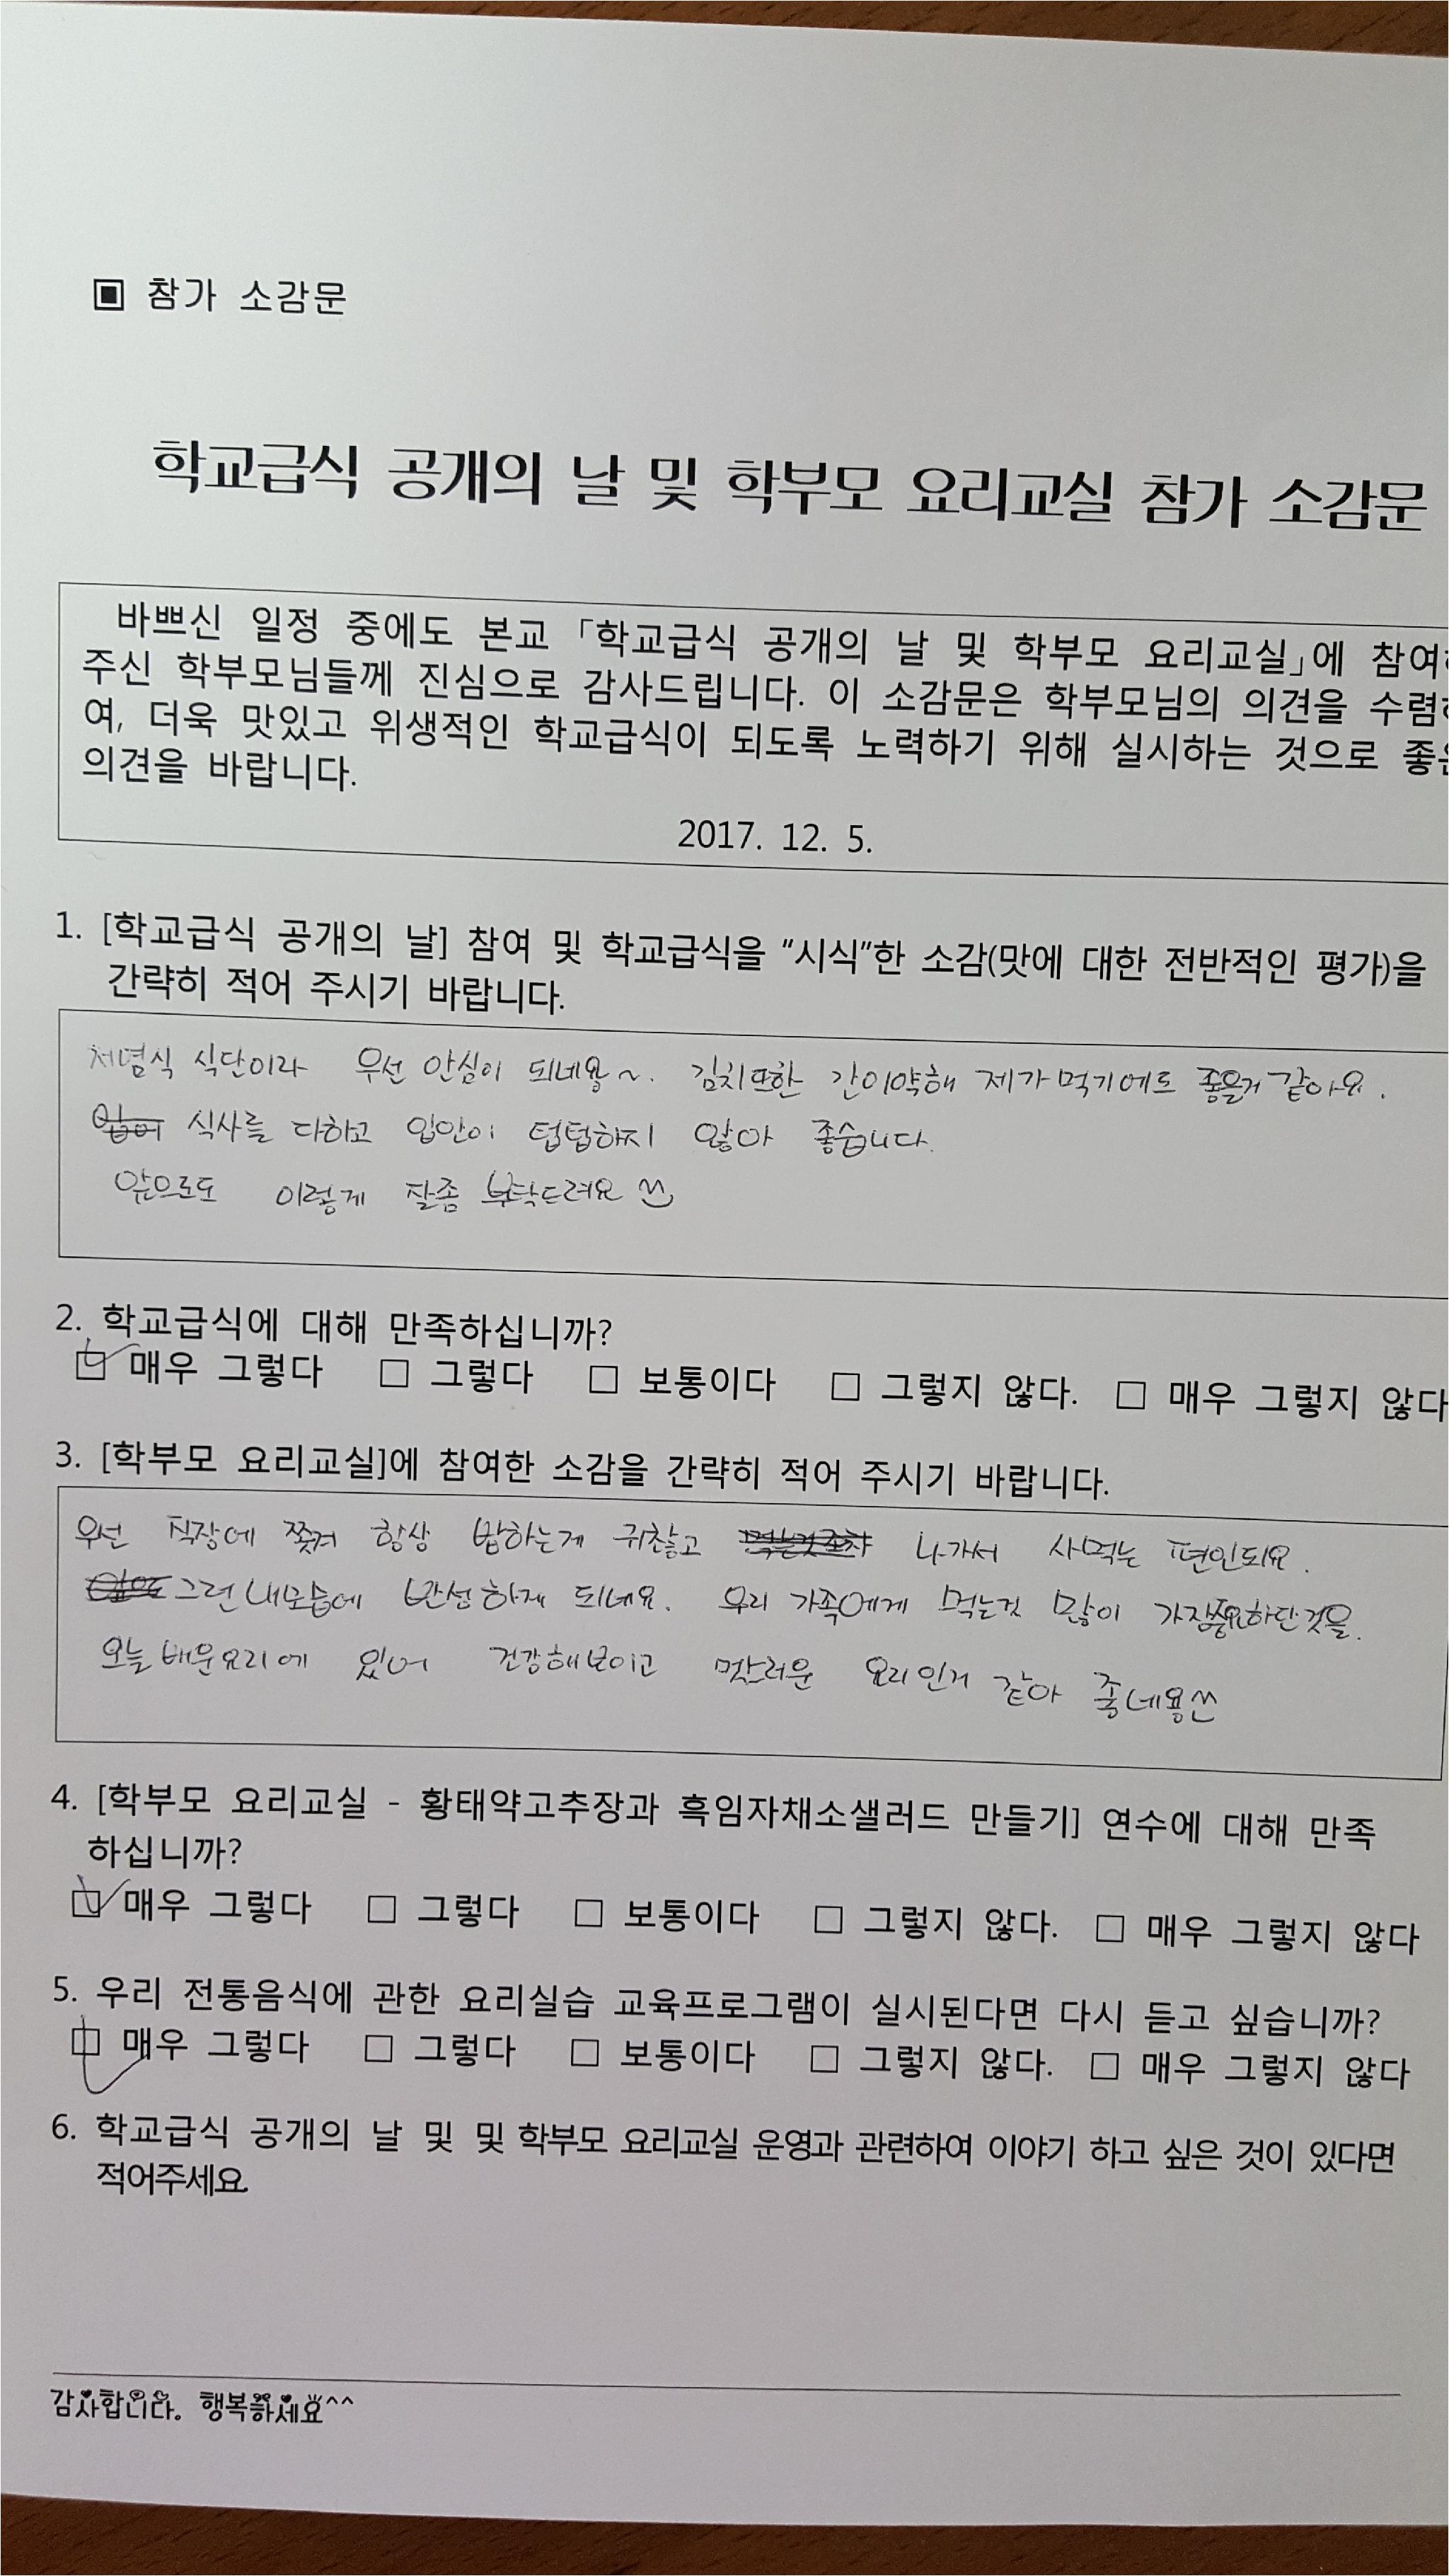 ▣ 참가 소감문
학교급식 공개의 날 및 학부모 요리교실 참가 소감문
바쁘신 일정 중에도 본교 「학교급식 공개의 날 및 학부모 요리교실」에 참여
주신 학부모님들께 진심으로 감사드립니다. 이 소감문은 학부모님의 의견을 수렴
여, 더욱 맛있고 위생적인 학교급식이 되도록 노력하기 위해 실시하는 것으로
의견을 바랍니다.
2017. 12. 5.
1. [학교급식 공개의 날] 참여 및 학교급식을 “시식”한 소감(맛에 대한 전반적인 평가)을
간략히 적어 주시기 바랍니다.
저염식 식단이라 우선 안심이 되네용~. 김치또한 간이약해 제가먹기에도 좋을거 같아요.
식사를 다하고 입안이 텁텁하지 않아 좋습니다.
앞으로도 이렇게 잘좀 부탁드려요
2. 학교급식에 대해 만족하십니까?
☑ 매우 그렇다 □ 그렇다 □ 보통이다 □ 그렇지 않다. □ 매우 그렇지 않다
3. [학부모 요리교실]에 참여한 소감을 간략히 적어 주시기 바랍니다.
우선 직장에 쫒겨 항상 밥하는게 귀찮고 나가서 사먹는 편인되요.
그런내모습에 반성하게 되네요. 우리 가족에게 먹는것 많이 가장중요하단것을.
오늘배운요리에 있어 건강해보이고 먹스러운 요리인거 같아 좋네용
4. [학부모 요리교실 - 황태약고추장과 흑임자채소샐러드 만들기] 연수에 대해 만족
하십니까?
☑ 매우 그렇다 □ 그렇다 □ 보통이다 □ 그렇지 않다. □ 매우 그렇지 않다
5. 우리 전통음식에 관한 요리실습 교육프로그램이 실시된다면 다시 듣고 싶습니까?
☑ 매우 그렇다 □ 그렇다 □ 보통이다 □ 그렇지 않다. □ 매우 그렇지 않다
6. 학교급식 공개의 날 및 및 학부모 요리교실 운영과 관련하여 이야기 하고 싶은 것이 있다면
적어주세요.
감사합니다. 행복하세요^^